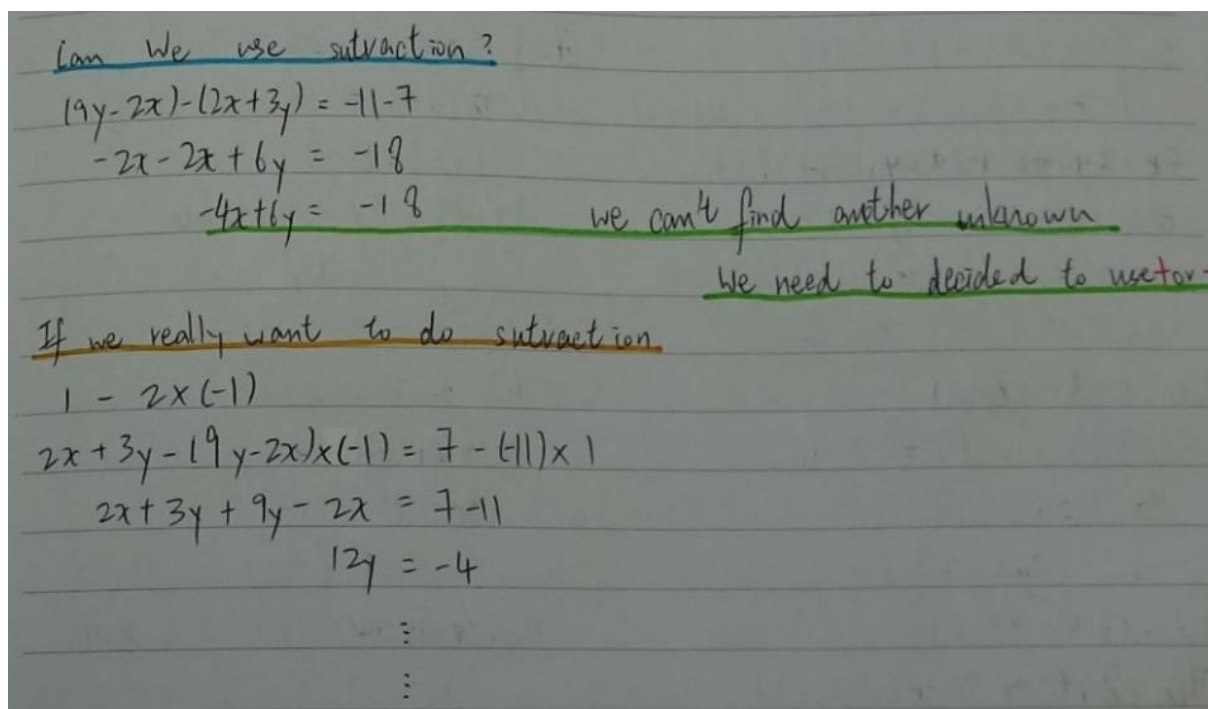 Can We use sutraction?
(9y-2x)-(2x+3y) = -11-7
-2x-2x+6y = -18
-4x+6y = -18 we can't find another unknown
We need to decided to use + or -
If we really want to do sutraction
1 - 2x(-1)
2x+3y-(9y-2x)x(-1) = 7-(-11)x1
2x+3y+9y-2x = 7-11
12y = -4
⋮
⋮